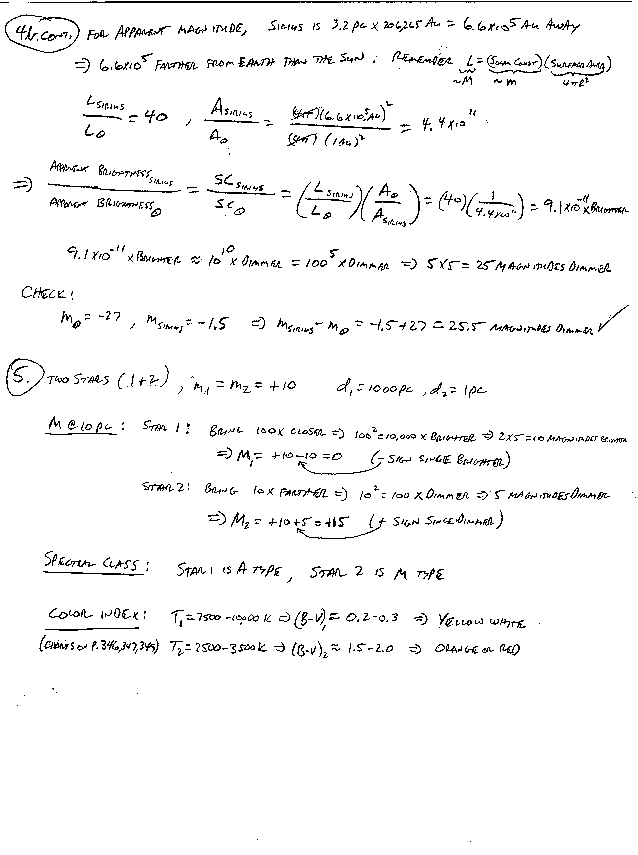 4b. CONT.) FOR APPARENT MAGNITUDE, SIRIUS IS 3.2 PC X 206,265 AU = 6.6X10⁵ AU AWAY
⇒ 6.6X10⁵ FARTHER FROM EARTH THAN THE SUN. REMEMBER L = (SOLAR CONST)(SURFACE AREA)
~M ~m 4πR²
L_SIRIUS / L_⊙ = 40 , A_SIRIUS / A_⊙ = (4π)(6.6X10⁵ AU)² / (4π)(1AU)² = 4.4X10¹¹
⇒ APPARENT BRIGHTNESS_SIRIUS / APPARENT BRIGHTNESS_⊙ = SC_SIRIUS / SC_⊙ = (L_SIRIUS / L_⊙)(A_⊙ / A_SIRIUS) = (40)(1 / 4.4X10¹¹) = 9.1X10⁻¹¹ X BRIGHTER
9.1X10⁻¹¹ X BRIGHTER ≈ 10¹⁰ X DIMMER = 100⁵ X DIMMER ⇒ 5X5 = 25 MAGNITUDES DIMMER
CHECK:
m_⊙ = -27 , m_SIRIUS = -1.5 ⇒ m_SIRIUS - m_⊙ = -1.5+27 = 25.5 MAGNITUDES DIMMER ✓
5. TWO STARS (1+2) , m₁ = m₂ = +10 d₁ = 1000pc , d₂ = 1pc
M @ 10pc : STAR 1 : BRING 100X CLOSER ⇒ 100² = 10,000 X BRIGHTER ⇒ 2X5 = 10 MAGNITUDES BRIGHTER
⇒ M₁ = +10-10 = 0 (- SIGN SINCE BRIGHTER)
STAR 2 : BRING 10X FARTHER ⇒ 10² = 100 X DIMMER ⇒ 5 MAGNITUDES DIMMER
⇒ M₂ = +10+5 = +15 (+ SIGN SINCE DIMMER)
SPECTRAL CLASS : STAR 1 IS A TYPE, STAR 2 IS M TYPE
COLOR INDEX : T₁ = 7500-10,000 K ⇒ (B-V)₁ = 0.2-0.3 ⇒ YELLOW WHITE
(CHARTS ON P. 346,347,349) T₂ = 2500-3500K ⇒ (B-V)₂ ≈ 1.5-2.0 ⇒ ORANGE OR RED